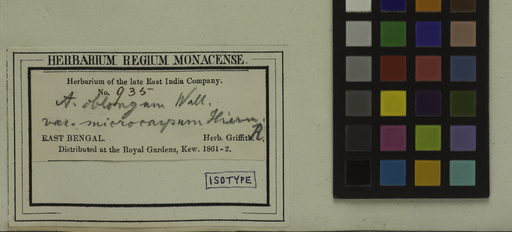 HERBARIUM REGIUM MONACENSE.
Herbarium of the late East India Company.
No. 935
A. oblongum Wall.
var. microcarpum Hiern.
EAST BENGAL. Herb. Griffith
Distributed at the Royal Gardens, Kew. 1861-2.
ISOTYPE